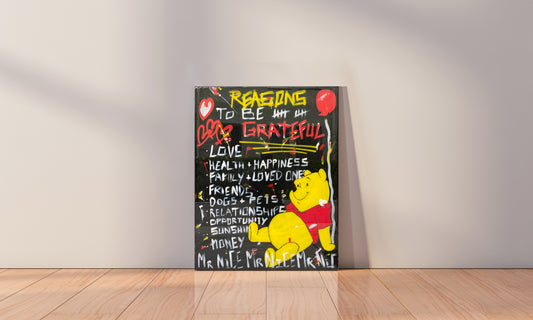 REASONS
TO BE
GRATEFUL
· LOVE
· HEALTH + HAPPINESS
· FAMILY + LOVED ONE
· FRIENDS
· DOGS + PETS
· RELATIONSHIPS
· OPPORTUNITY
· SUNSHIN
· MONEY
MR NICE MR NICE MR NIC